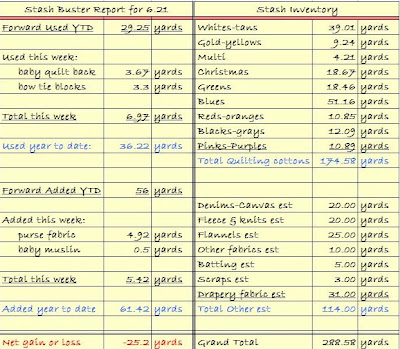 Stash Buster Report for 6.21
Forward Used YTD 29.25 yards
Used this week:
baby quilt back 3.67 yards
bow tie blocks 3.3 yards
Total this week 6.97 yards
Used year to date: 36.22 yards
Forward Added YTD 56 yards
Added this week:
purse fabric 4.92 yards
baby muslin 0.5 yards
Total this week 5.42 yards
Added year to date 61.42 yards
Net gain or loss -25.2 yards
Stash Inventory
Whites-tans 39.01 yards
Gold-yellows 9.24 yards
Multi 4.21 yards
Christmas 18.67 yards
Greens 18.46 yards
Blues 51.16 yards
Reds-oranges 10.85 yards
Blacks-grays 12.09 yards
Pinks-Purples 10.89 yards
Total Quilting cottons 174.58 yards
Denims-Canvas est 20.00 yards
Fleece & knits est 20.00 yards
Flannels est 25.00 yards
Other fabrics est 10.00 yards
Batting est 5.00 yards
Scraps est 3.00 yards
Drapery fabric est 31.00 yards
Total Other est 114.00 yards
Grand Total 288.58 yards